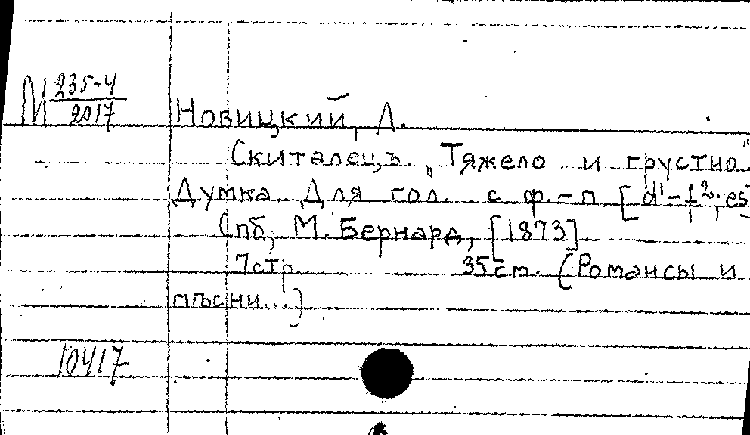 М 235-4
2017
Новицкий, Д.
Скиталецъ. „Тяжело и грустно"
Думка. Для гол. с ф.-п [d¹-f²; es
Спб, М. Бернард, [1873]
7стр. 35см. (Романсы и
пѣсни...)
10417